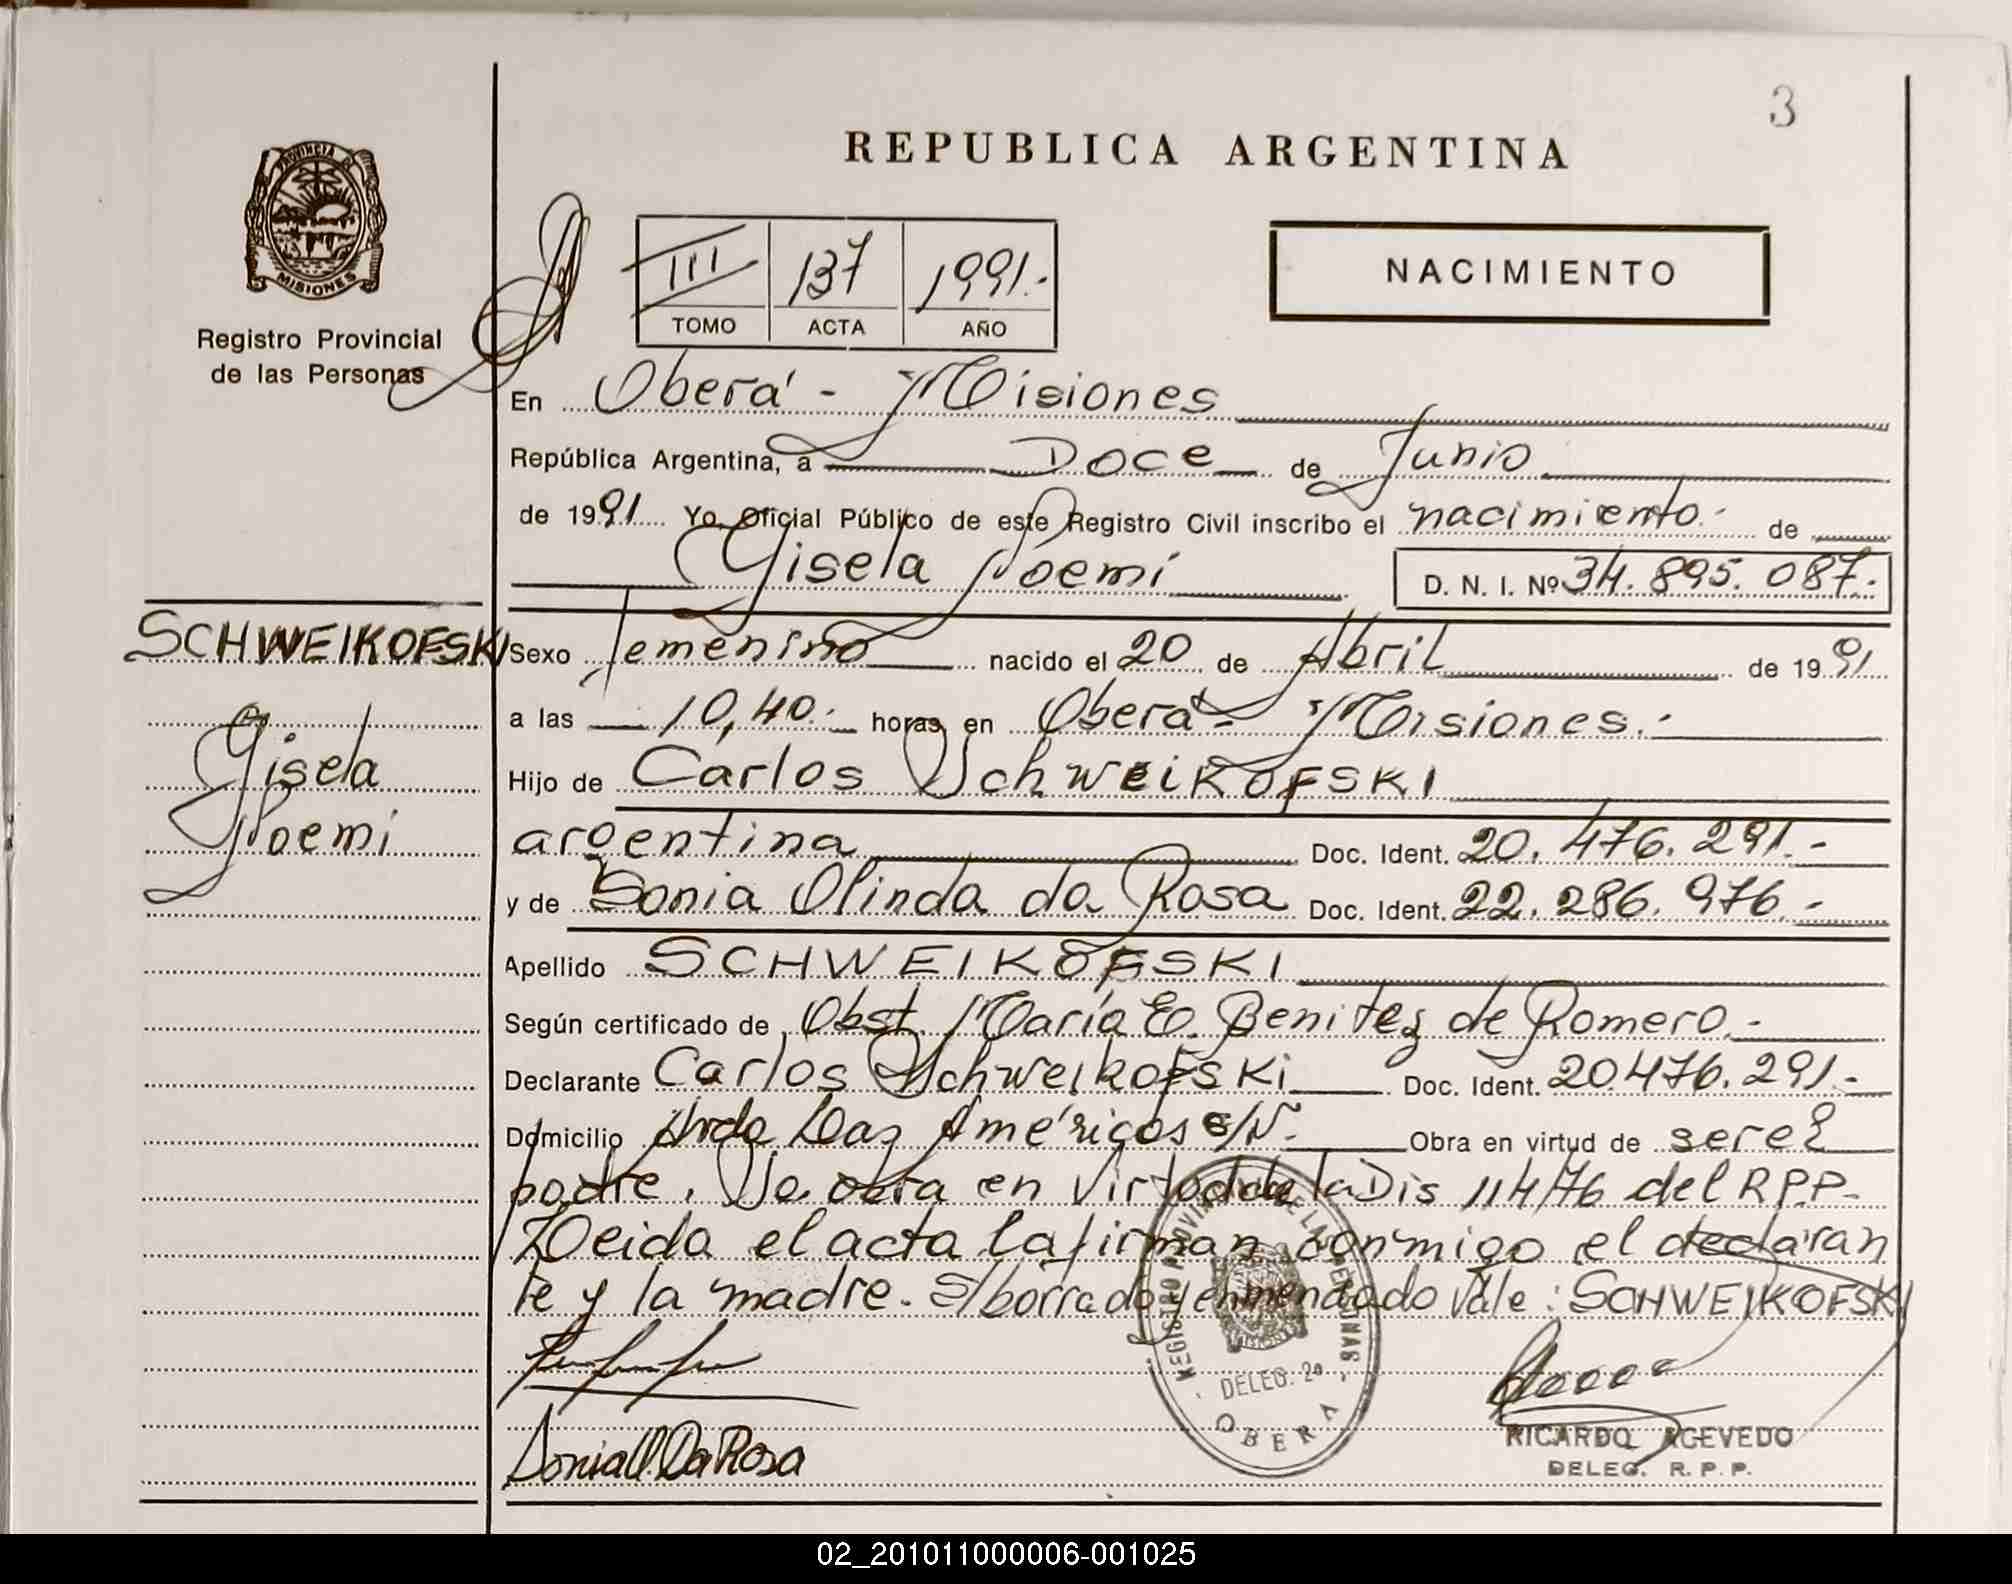 3
REPUBLICA ARGENTINA
PROVINCIA DE
MISIONES
Registro Provincial
de las Personas
III 137 1991.-
TOMO ACTA AÑO
NACIMIENTO
En Oberá - Misiones
República Argentina, a Doce de Junio
de 1991 Yo, Oficial Público de este Registro Civil inscribo el nacimiento.- de
Gisela Noemi D. N. I. Nº 34.895.087.-
SCHWEIKOFSKI
Gisela
Noemi
Sexo femenino nacido el 20 de Abril de 1991
a las 10,40.- horas en Oberá - Misiones.-
Hijo de Carlos SchweiKOFSKI
argentina Doc. Ident. 20.476.291.-
y de Sonia Olinda da Rosa Doc. Ident. 22.286.976.-
Apellido SCHWEIKOFSKI
Según certificado de Obst. María E. Benitez de Romero.-
Declarante Carlos SchweikofsKi Doc. Ident. 20.476.291.-
Domicilio Avda Las Américas s/N.- Obra en virtud de ser el
padre. Se obra en virtud de la Dis 114/76 del R.P.P.-
Leida el acta la firman conmigo el declaran
te y la madre.- S/borrado y enmendado Vale: SCHWEIKOFSKI
REGISTRO PROVINCIAL DE LAS PERSONAS
DELEG. 2a
OBERA
Sonia O. Da Rosa
RICARDO ACEVEDO
DELEG. R. P. P.
02_201011000006-001025